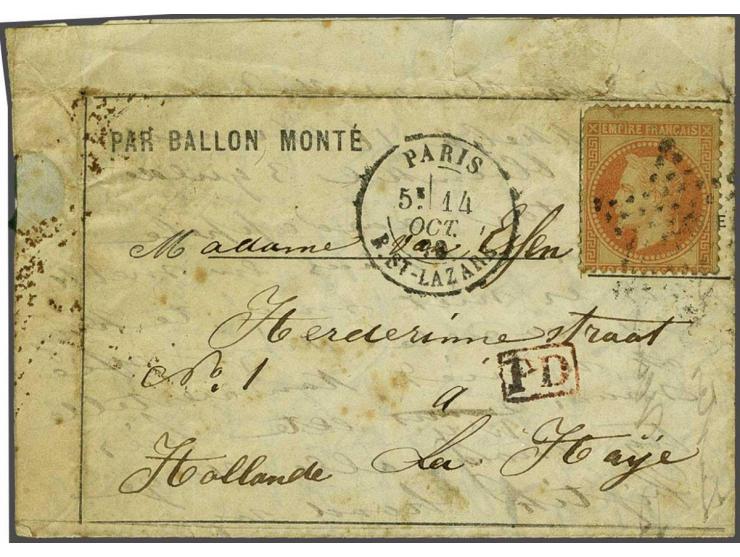 PAR BALLON MONTÉ
EMPIRE FRANÇAIS
PARIS
5E 14
OCT.
R. ST-LAZARE
Madame van Essen
Herderinne straat
No. 1
PD
à
Hollande La Haÿe